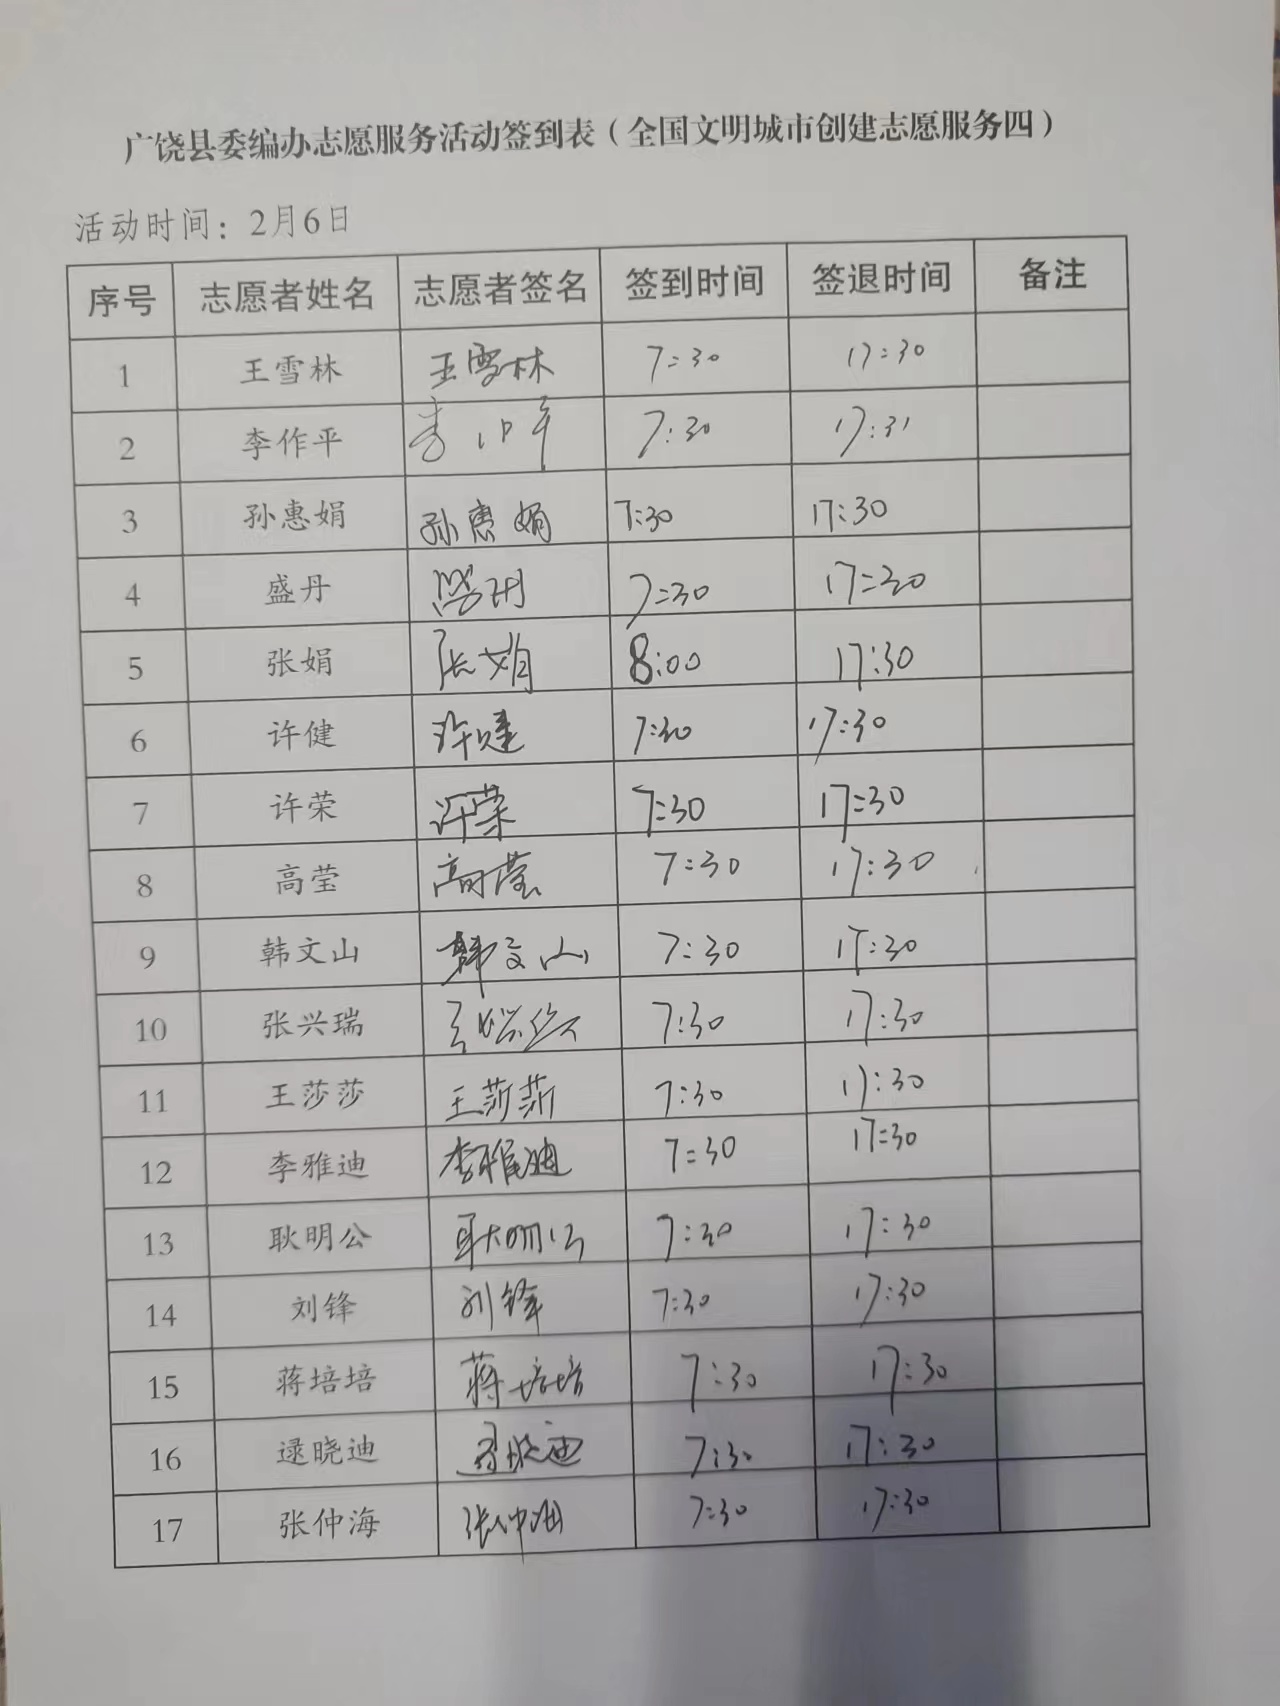 广饶县委编办志愿服务活动签到表（全国文明城市创建志愿服务四）
活动时间：2月6日
序号 志愿者姓名 志愿者签名 签到时间 签退时间 备注
1 王雪林 王雪林 7:30 17:30
2 李作平 李作平 7:30 17:31
3 孙惠娟 孙惠娟 7:30 17:30
4 盛丹 盛丹 7:30 17:30
5 张娟 张娟 8:00 17:30
6 许健 许健 7:30 17:30
7 许荣 许荣 7:30 17:30
8 高莹 高莹 7:30 17:30
9 韩文山 韩文山 7:30 17:30
10 张兴瑞 7:30 17:30
11 王莎莎 王莎莎 7:30 17:30
12 李雅迪 李雅迪 7:30 17:30
13 耿明公 耿明公 7:30 17:30
14 刘锋 刘锋 7:30 17:30
15 蒋培培 蒋培培 7:30 17:30
16 逯晓迪 逯晓迪 7:30 17:30
17 张仲海 张仲海 7:30 17:30